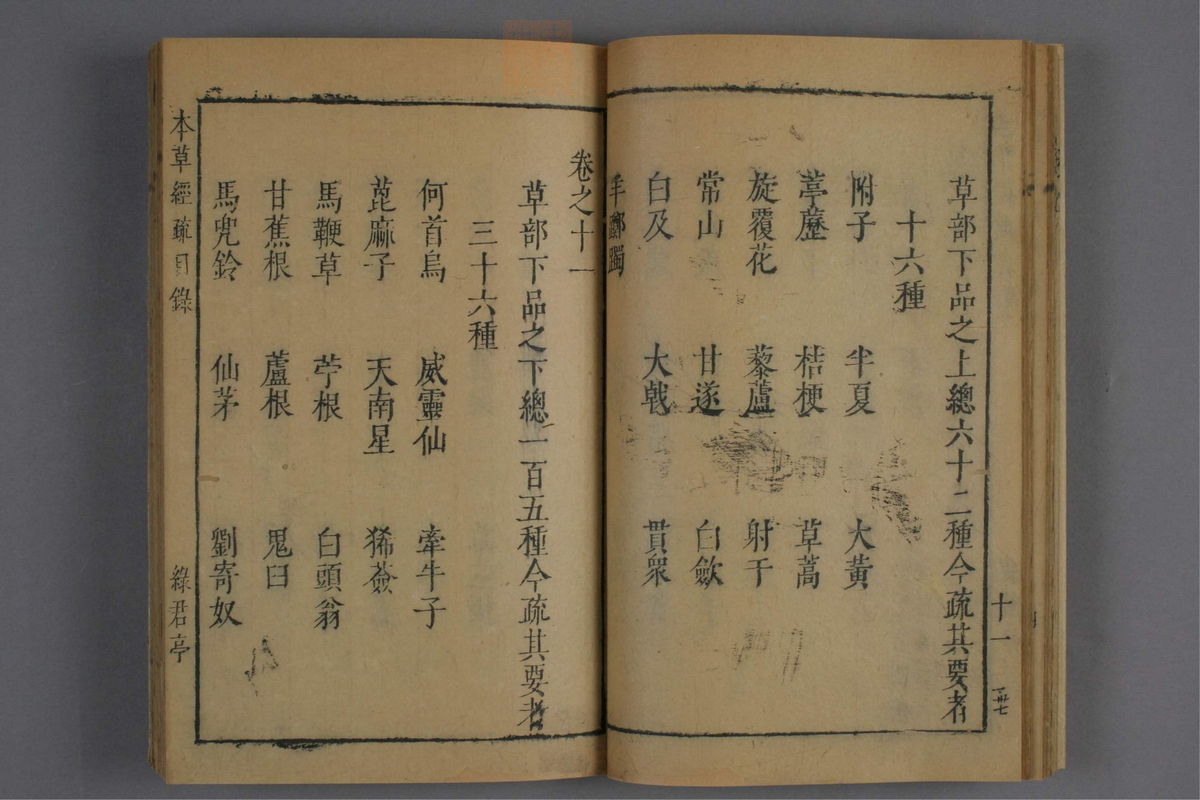 草部下品之上總六十二種今疏其要者
十六種
附子 半夏 大黃
葶藶 桔梗 草蒿
旋覆花 藜蘆 射干
常山 甘遂 白歛
白及 大戟 貫衆
羊躑躅
十一
卷之十一
草部下品之下總一百五種今疏其要者
三十六種
何首烏 威靈仙 牽牛子
蓖麻子 天南星 豨薟
馬鞭草 苧根 白頭翁
甘蕉根 蘆根 鬼臼
馬兜鈴 仙茅 劉寄奴
本草經疏目錄 綠君亭